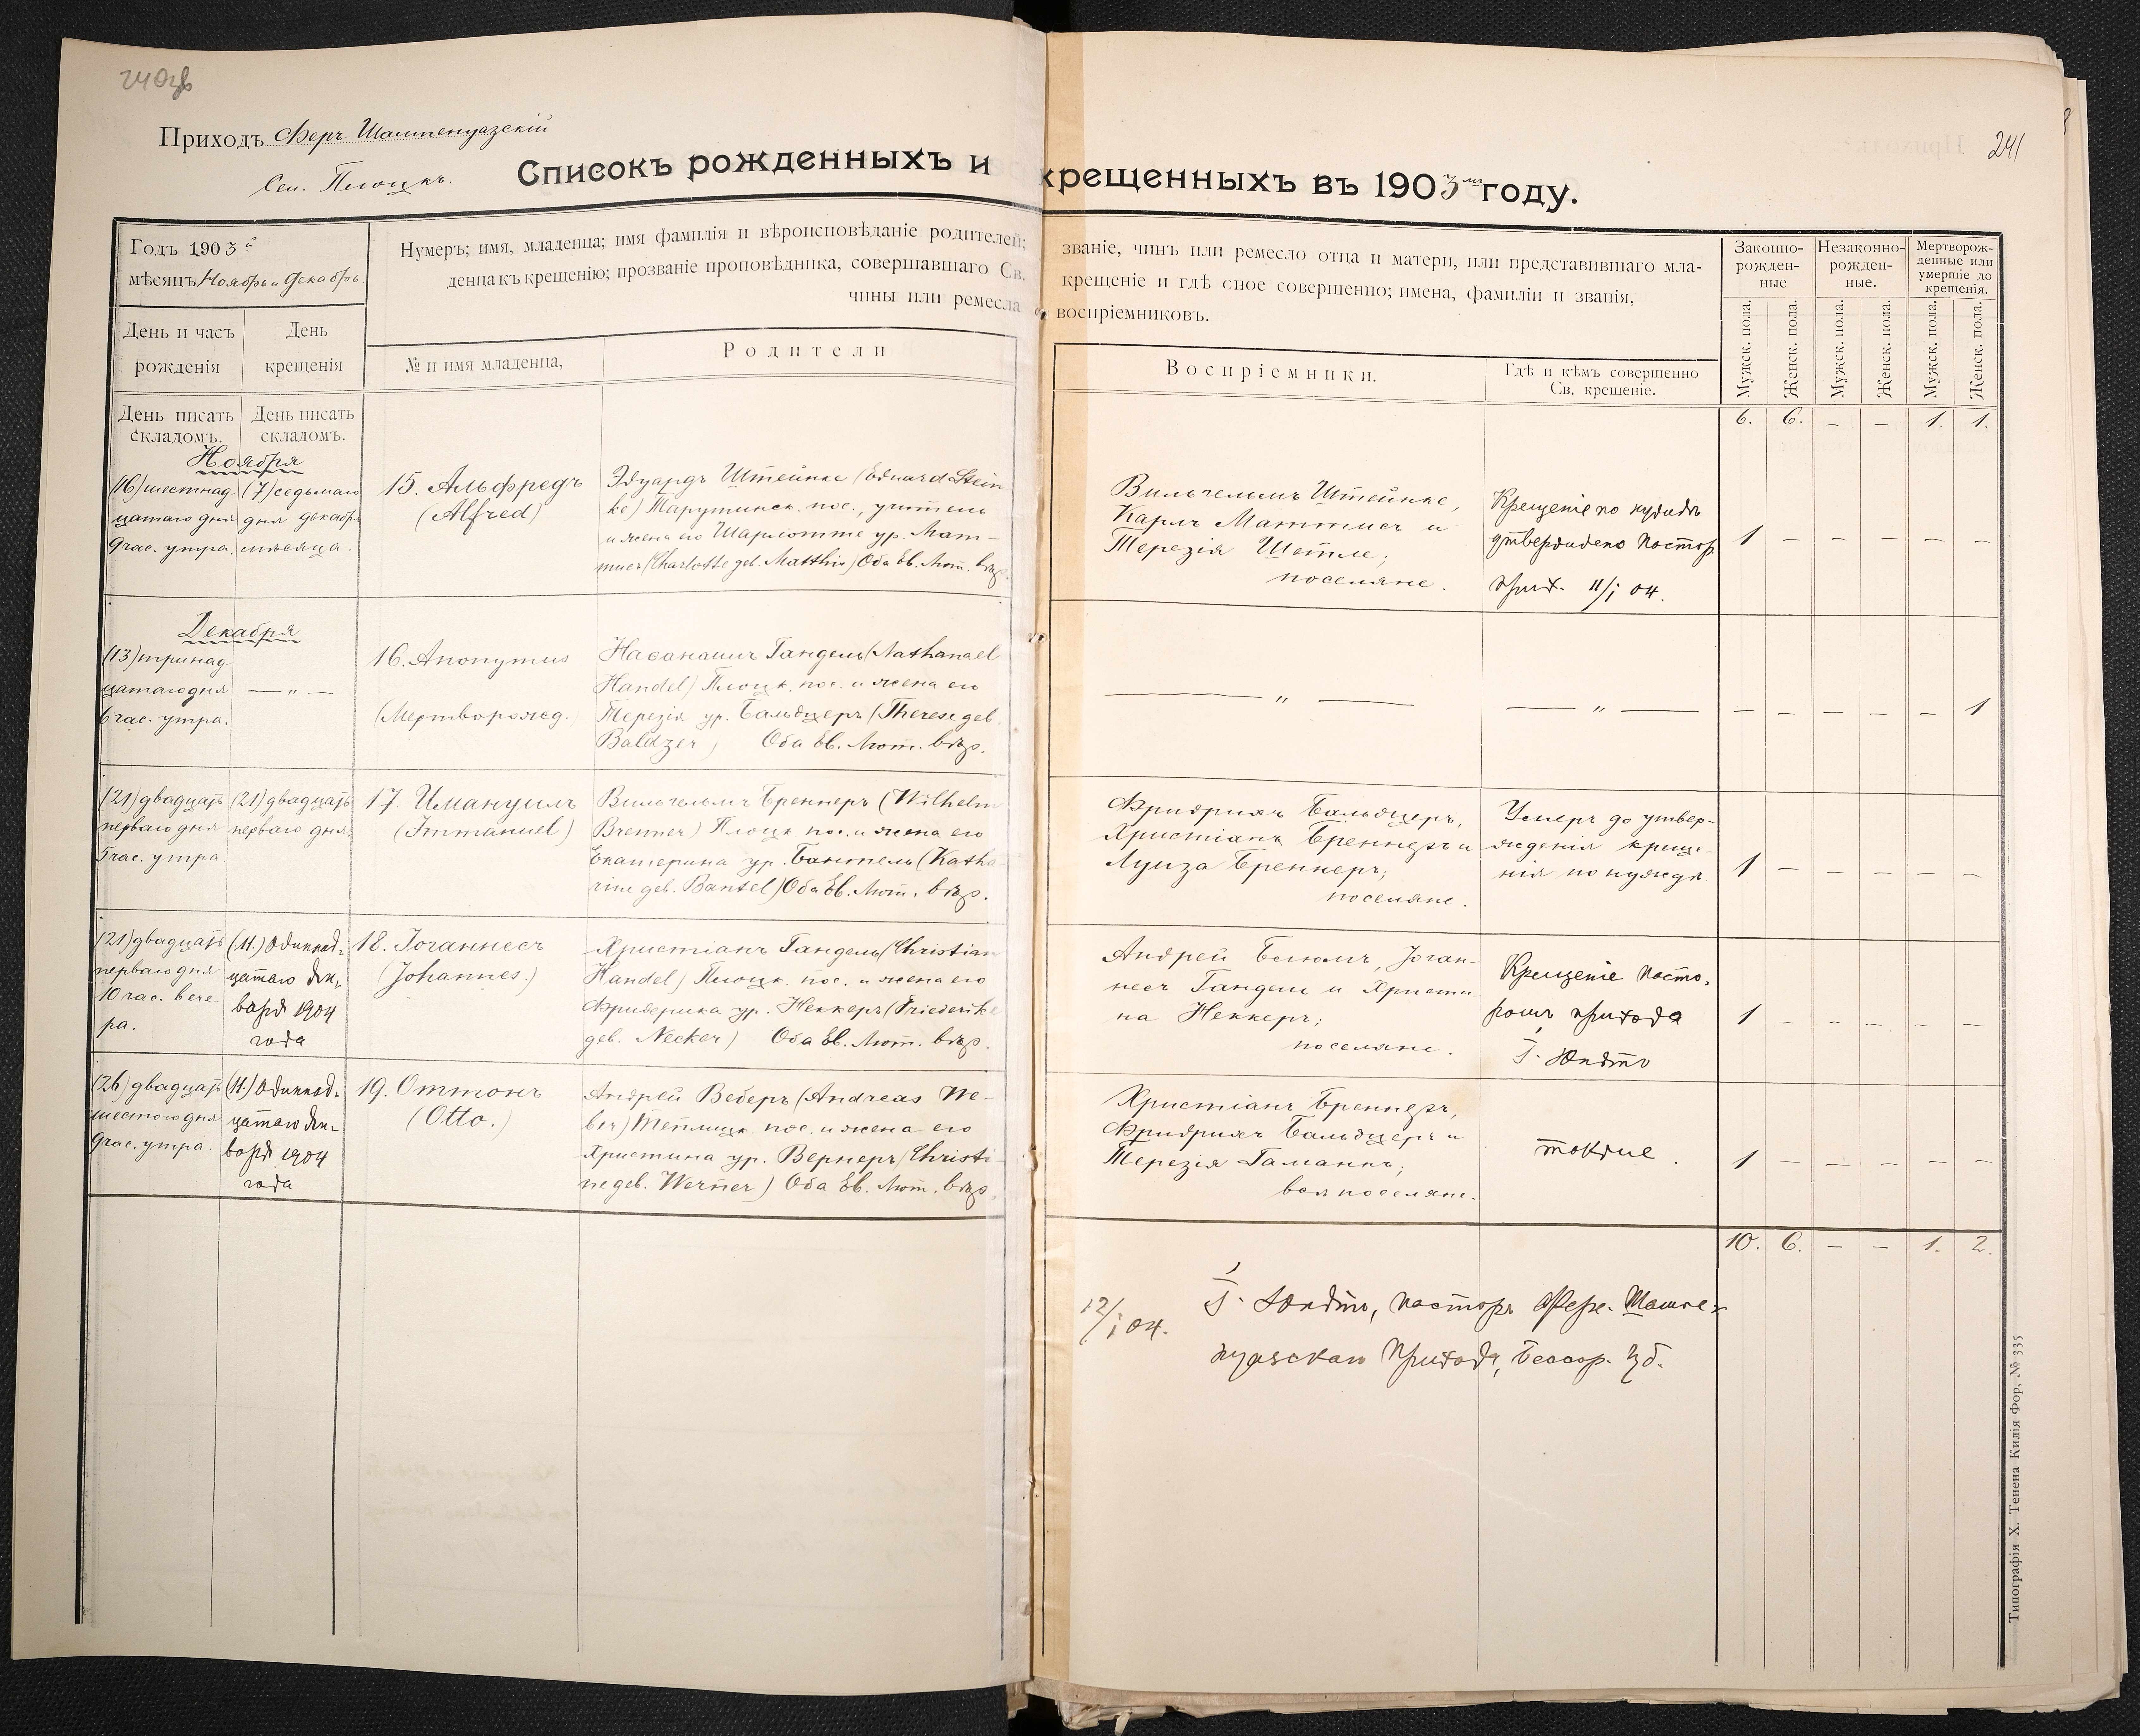 240об
Приходъ Феръ-Шампенуазскій
Сел. Плоцкъ.
Списокъ рожденныхъ и крещенныхъ въ 1903мъ году.
241
Годъ 1903й
мѣсяцъ Ноябрь и Декабрь.
Нумеръ; имя, младенца; имя фамилія и вѣроисповѣданіе родителей; званіе, чинъ или ремесло отца и матери, или представившаго мла-
денца къ крещенію; прозваніе проповѣдника, совершавшаго Св. крещеніе и гдѣ сное совершенно; имена, фамиліи и званія,
чины или ремесла воспріемниковъ.
День и часъ рожденія
День крещенія
№ и имя младенца,
Родители
Воспріемники.
Гдѣ и кѣмъ совершенно
Св. крещеніе.
Законно-
рожден-
ные
Незаконно-
рожден-
ные.
Мертворож-
денные или
умершіе до
крещенія.
Мужск. пола.
Женск. пола.
Мужск. пола.
Женск. пола.
Мужск. пола.
Женск. пола.
День писать
складомъ.
День писать
складомъ.
6. 6. — — 1. 1.
Ноября
(16) шестнад-
цатаго дня
9 час. утра.
(7) седьмаго
дня декабря
мѣсяца.
15. Альфредъ
(Alfred)
Эдуардъ Штейнке (Eduard Stein
ke) Тарутинск. пос., учитель
и жена его Шарлотте ур. Мат-
тисъ (Charlotte geb. Matthis) Оба Ев. Лют. вѣр.
Вильгельмъ Штейнке,
Карлъ Маттисъ и
Терезія Шетле;
поселяне.
Крещеніе по нуждѣ
утверждено Пастор.
прих. 11/I 04.
1 — — — — —
Декабря
(13) тринад
цатаго дня
6 час. утра.
— „ —
16. Anonymus
(Мертворожд.)
Насанаилъ Гандель (Nathanael
Handel) Плоцк. пос. и жена его
Терезія ур. Бальдцеръ (Therese geb.
Baldzer) Оба Ев. Лют. вѣр.
— „ —
— „ —
— — — — — 1
(21) двадцать
перваго дня
5 час. утра.
(21) двадцать
перваго дня
17. Имануилъ
(Immanuel)
Вильгельмъ Бреннеръ (Wilhelm
Brenner) Плоцк пос. и жена его
Екатерина ур. Бантель (Katha
rine geb. Bantel) Оба Ев. Лют. вѣр.
Фридрихъ Бальдцеръ,
Христіанъ Бреннеръ и
Луиза Бреннеръ;
поселяне.
Умеръ до утвер-
жденія креще-
нія по нуждѣ.
1 — — — — —
(21) двадцать
перваго дня
10 час. вече-
ра.
(11.) Одиннад-
цатаго Ян-
варя 1904
года
18. Іоганнесъ
(Johannes.)
Христіанъ Гандель (Christian
Handel) Плоцк. пос. и жена его
Фридерика ур. Неккеръ (Friederike
geb. Necker) Оба Ев. Лют. вѣр.
Андрей Бемъ, Іоган-
несъ Гандель и Христи-
на Неккеръ;
поселяне.
Крещеніе Пасто-
ромъ прихода
І. Юндтъ
1 — — — — —
(26) двадцать
шестого дня
9 час. утра.
(11.) Одиннад-
цатаго Ян-
варя 1904
года
19. Оттонъ
(Otto.)
Андрей Веберъ (Andreas We-
ber) Теплицк. пос. и жена его
Христина ур. Вернеръ (Christi-
ne geb. Werner) Оба Ев. Лют. вѣр.
Христіанъ Бреннеръ,
Фридрихъ Бальдцеръ и
Терезія Гаманнъ;
всѣ поселяне.
тоже.
1 — — — — —
10. 6. — — 1. 2.
12/I 04.
І. Юндтъ, пасторъ Феръ-Шампе-
нуазскаго прихода, Бессар. губ.
Типографія Х. Тенена Килія Фор, № 335